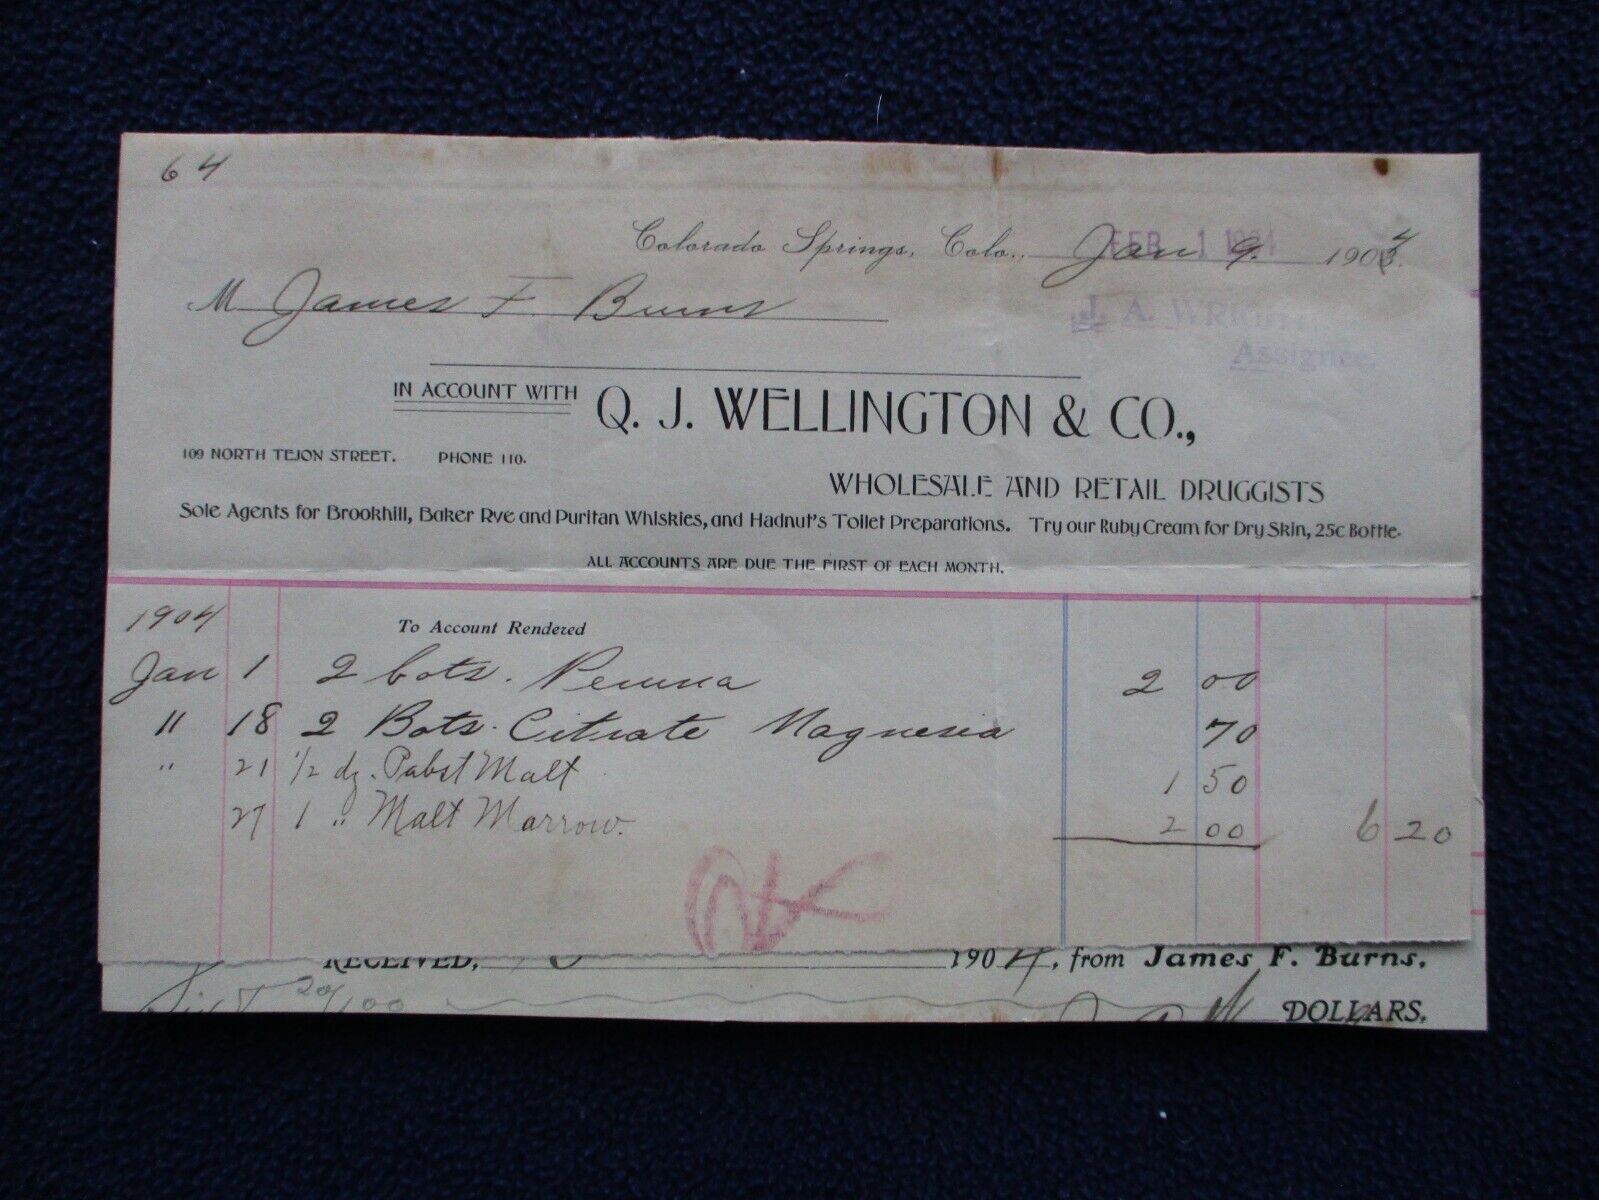 64
Colorado Springs, Colo., Jan 9. 1904.
FEB 1 1904
M James F. Burns
J. A. WRIGHT,
Assignee.
IN ACCOUNT WITH Q. J. WELLINGTON & CO.,
109 NORTH TEJON STREET. PHONE 110.
WHOLESALE AND RETAIL DRUGGISTS
Sole Agents for Brookhill, Baker Rye and Puritan Whiskies, and Hadnut's Toilet Preparations. Try our Ruby Cream for Dry Skin, 25c Bottle.
ALL ACCOUNTS ARE DUE THE FIRST OF EACH MONTH.
1904 To Account Rendered
Jan 1 2 bots. Peruna 2 00
" 18 2 Bots. Citrate Magnesia 70
" 21 1/2 dz. Pabst Malt 1 50
27 1 " Malt Marrow. 2 00 6 20
RECEIVED, 1904, from James F. Burns,
20/100 DOLLARS,